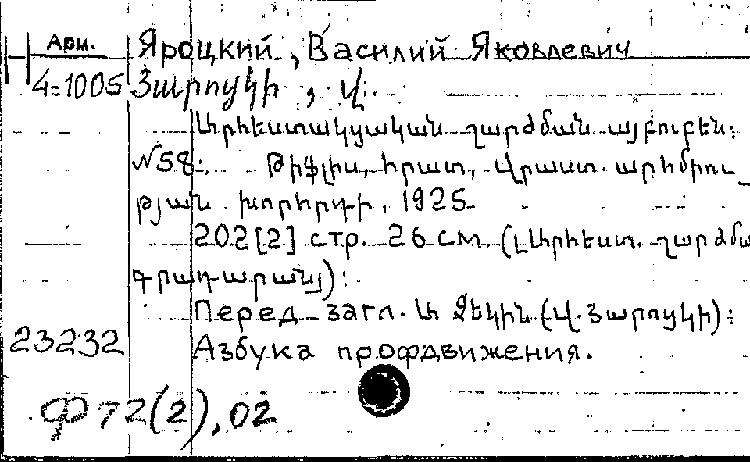 Арм. Яроцкий, Василий Яковлевич
4=1005 Յարոցկի, Վ.
Արհեստակցական շարժման այբուբեն:
№58: Թիֆլիս, հրատ. Վրաստ. արհմիու_
թյան խորհրդի, 1925
202[2] стр. 26 см. (Արհեստ. շարժմա
գրադարան):
Перед загл. Չեկին (Վ. Յարոցկի):
23232 Азбука профдвижения.
Ф72(2),02